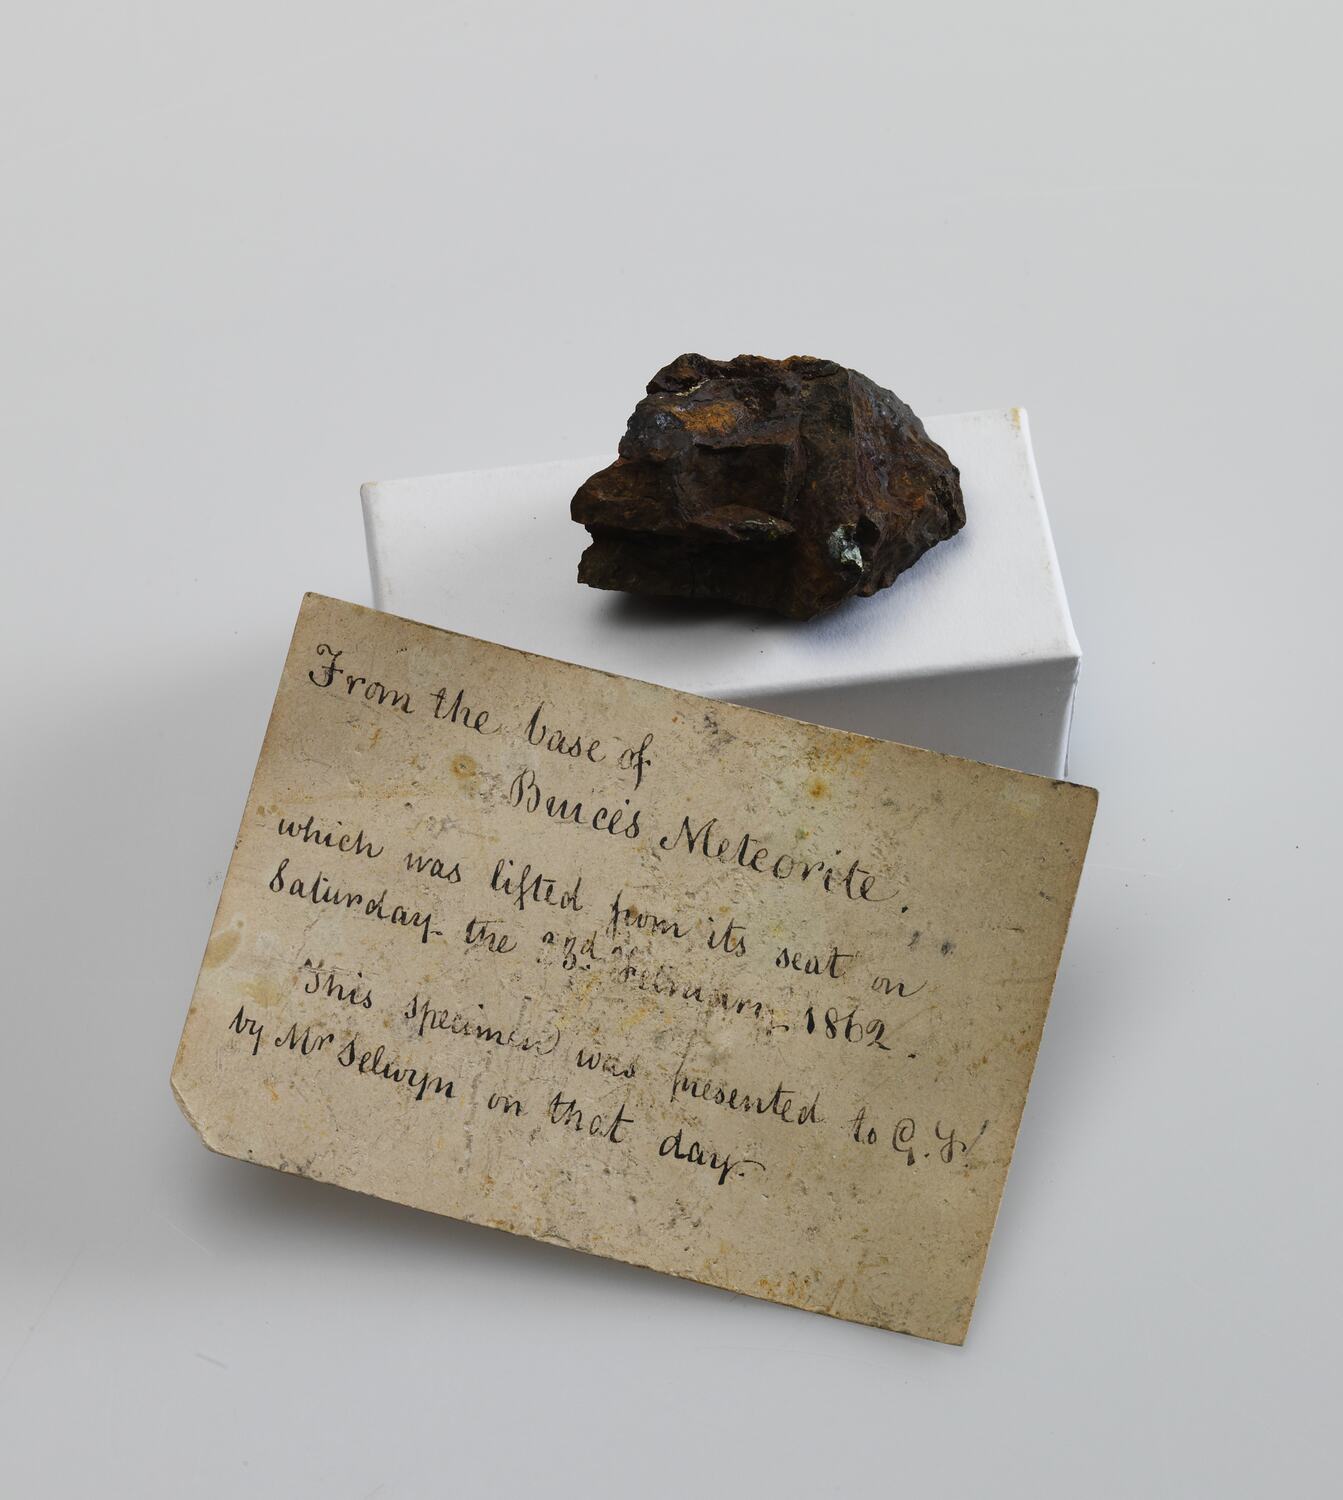 From the base of
Bruce's Meteorite.
which was lifted from its seat on
Saturday the 23d. February 1862.
This specimen was presented to
by Mr Selwyn on that day.